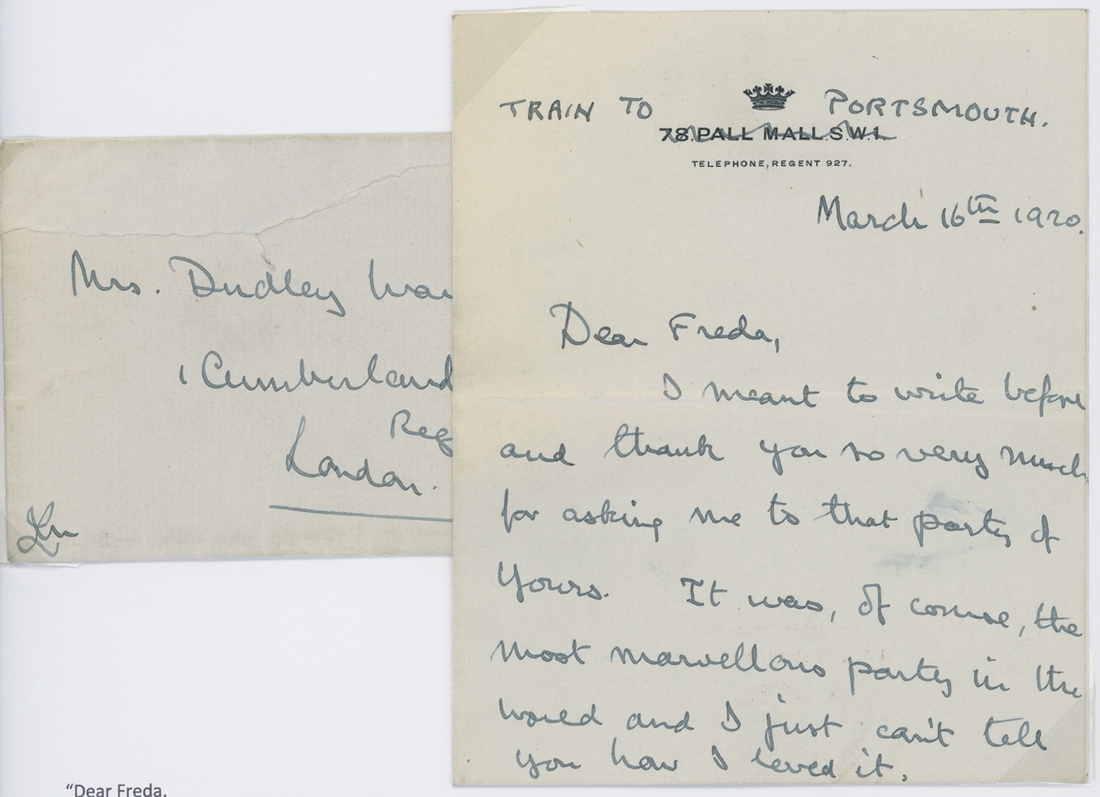 Mrs. Dudley
1 Cumberland
Reg
London.
TRAIN TO PORTSMOUTH.
78, PALL MALL S.W.1.
TELEPHONE, REGENT 927.
March 16th 1920.
Dear Freda,
I meant to write before
and thank you so very much
for asking me to that party of
yours. It was, of course, the
most marvellous party in the
world and I just can't tell
you how I loved it.
"Dear Freda,